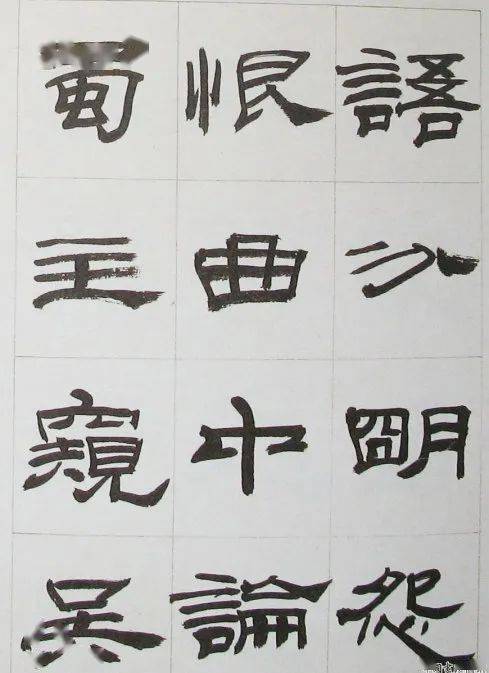 語分明怨
恨曲中論
蜀主窺吳